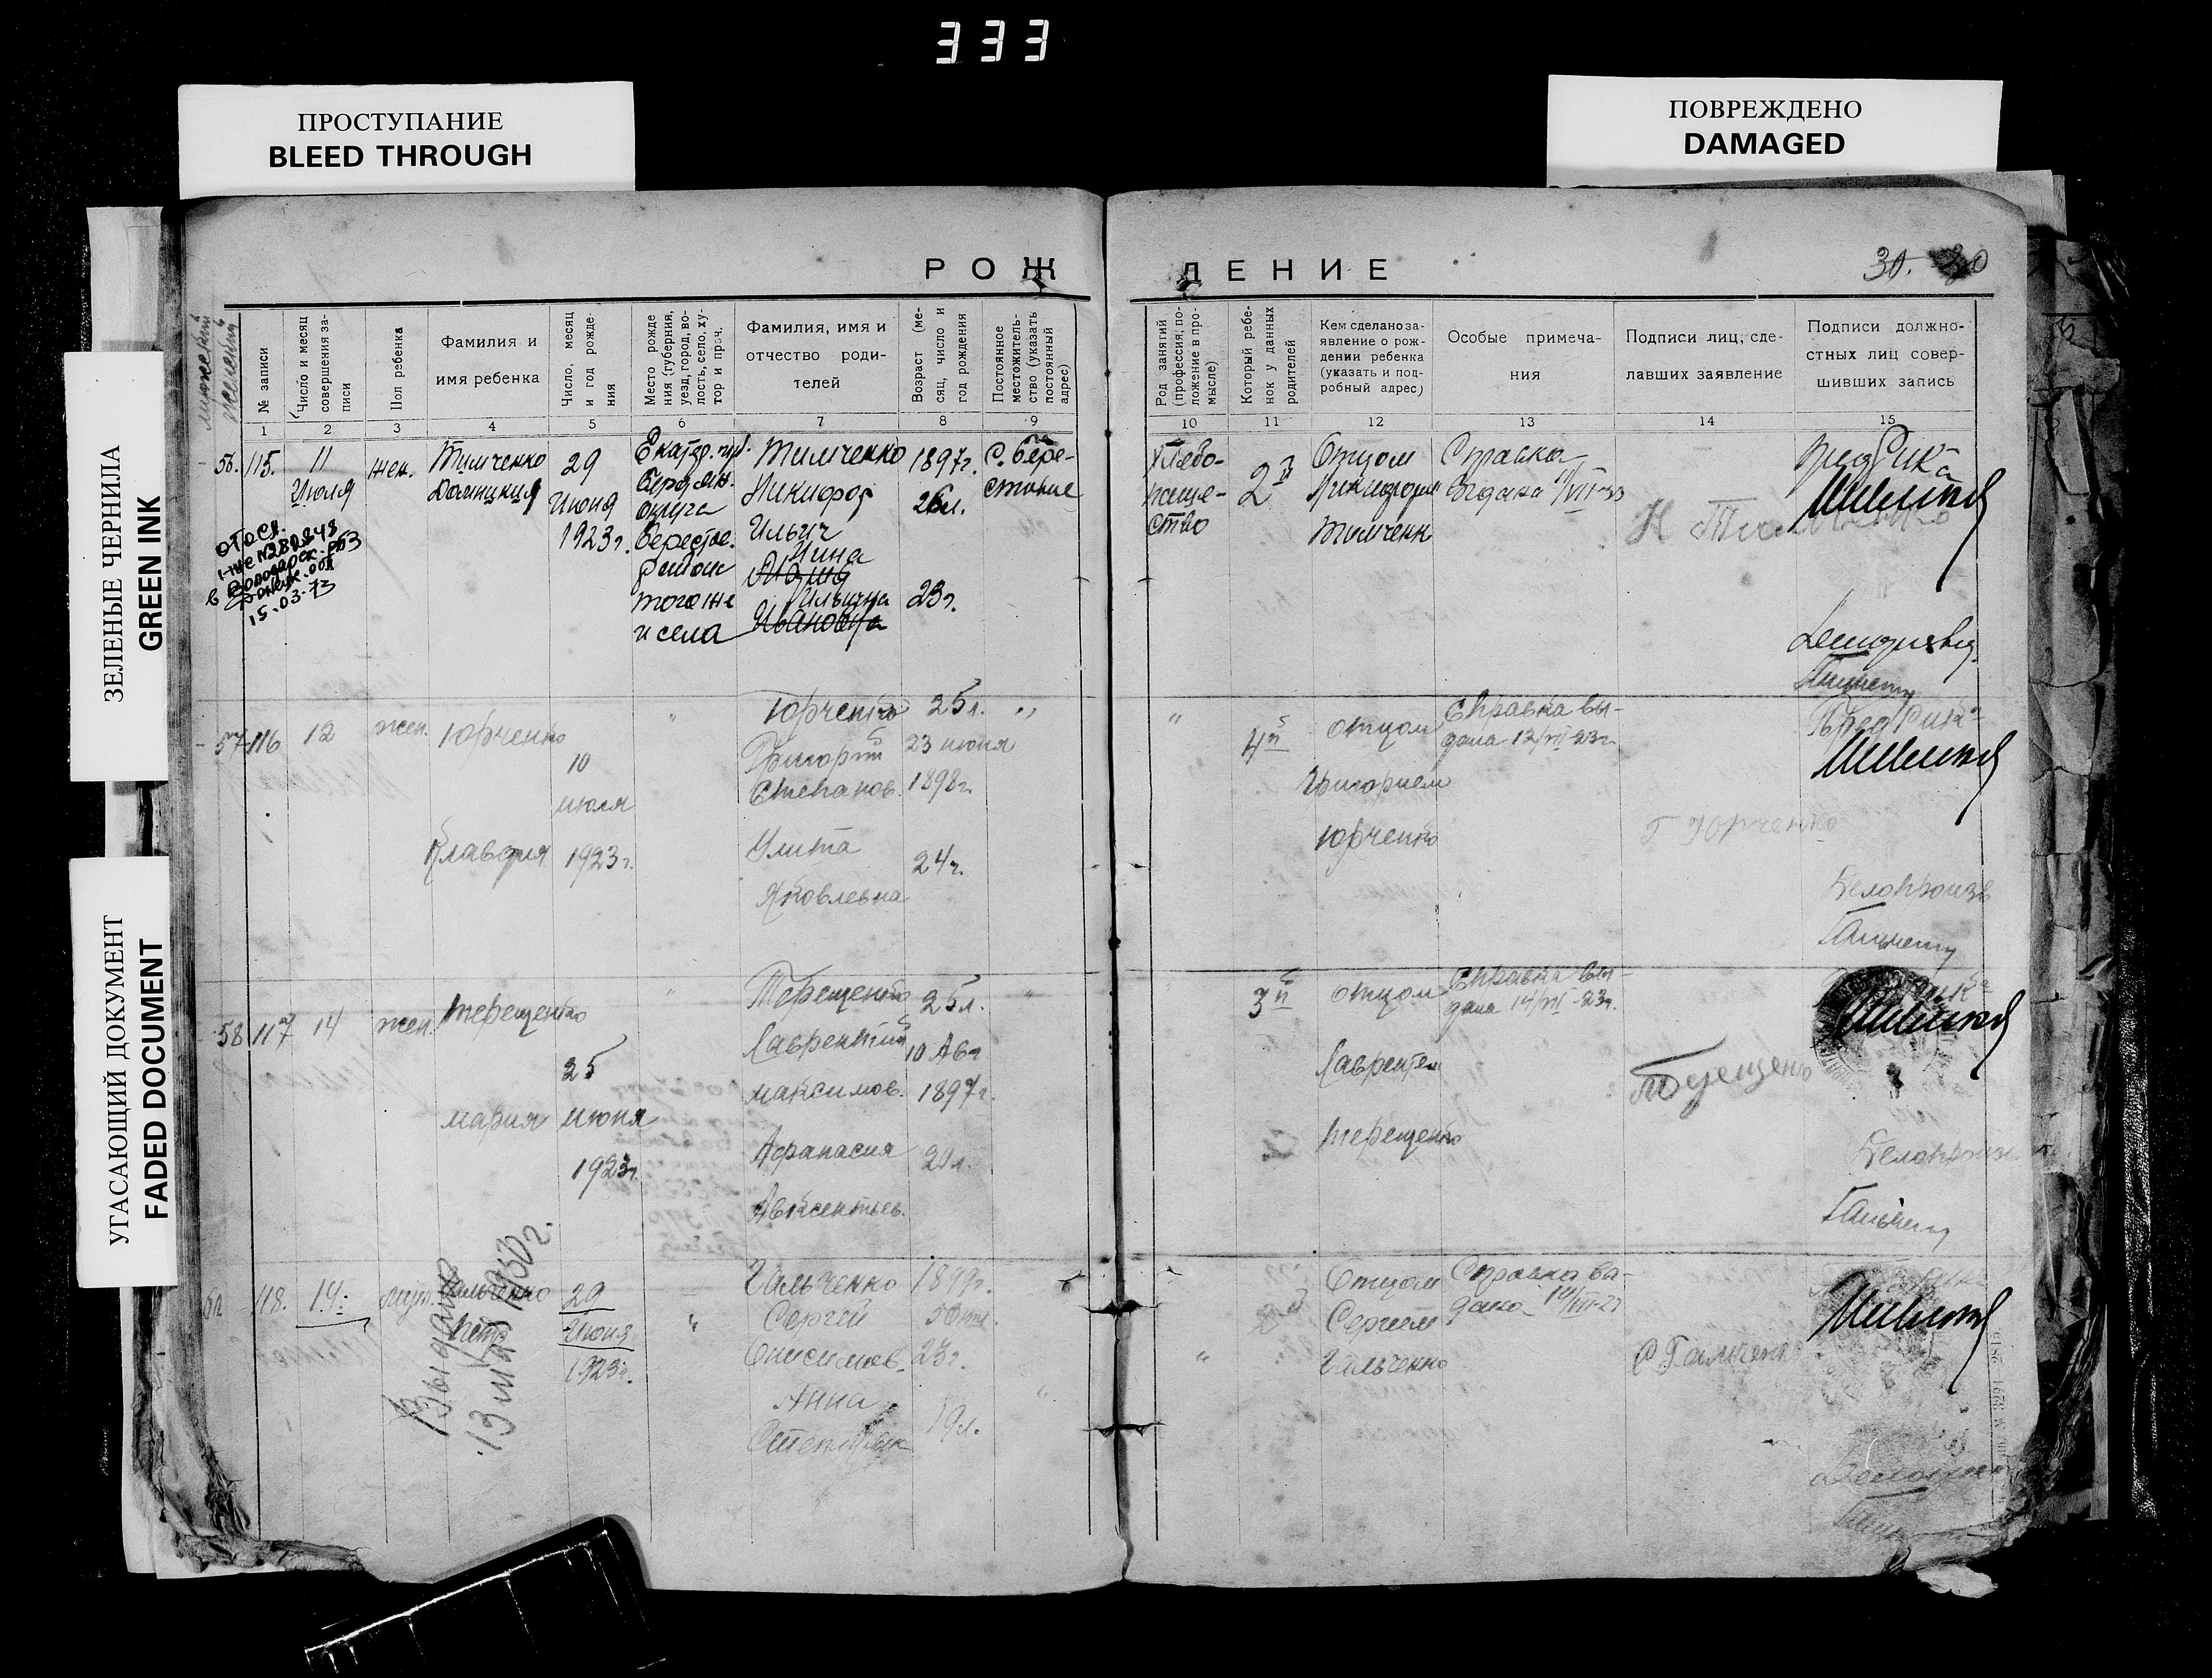 333
ПРОСТУПАНИЕ
BLEED THROUGH
ПОВРЕЖДЕНО
DAMAGED
ЗЕЛЕНЫЕ ЧЕРНИЛА
GREEN INK
УГАСАЮЩИЙ ДОКУМЕНТ
FADED DOCUMENT
РОЖДЕНИЕ
30.
№ записи
Число и месяц совершения записи
Пол ребенка
Фамилия и
имя ребенка
Число, месяц и год рождения
Место рожде ния (губерния, уезд, город, волость, село, хутор и проч.
Фамилия, имя и
отчество роди-
телей
Возраст (месяц, число и год рождения
Постоянное местожительство (указать постоянный адрес)
Род занятий (профессия, положение в промысле)
Который ребенок у данных родителей
Кем сделано за-
явление о рож-
дении ребенка
(указать и под-
робный адрес)
Особые примеча-
ния
Подписи лиц, сде-
лавших заявление
Подписи должно-
стных лиц совер-
шивших запись
1 2 3 4 5 6 7 8 9 10 11 12 13 14 15
56. 115.
11
Июля
жен.
Тимченко
Домникия
29
Июня
1923г.
Екатер. губ.
округа
Берестов.
района
того же
и села
Тимченко
Никифор
Ильич
Нина
Ильична
Ивановна
1897г.
26л.
23г.
С. Бере-
стовое
Хлебо-
паше-
ство
2й
Отцом
Никифором
Тимченк
Справка
выдана 11/VII-23
15.03.73
57 116
12
жен.
Юрченко
Клавдия
10
июля
1923г.
"
Юрченко
Григорий
Степанов.
Улита
Яковлевна
25л.
23 июня
1898г.
24г.
"
"
4й
отцом
Григорием
Юрченко
Справка вы-
дана 12/VII-23г.
Г Юрченко
Делопроизв
58 117
14
жен.
Терещенко
Мария
25
июня
1923г.
"
Терещенко
Лаврентий
Максимов.
Афанасия
Авксентьев.
25л.
10 Авг
1897г.
"
3й
отцом
Лаврентем
Терещенко
Справка вы-
дана 14/VII-23г.
Терещенко
118.
14.
муж.
Гальченко
Петр
29
Июня
1923г.
"
Гальченко
Сергей
Онисимов.
Анна
1899г.
23г.
19л.
"
"
2й
Отцом
Сергеем
Гальченко
Справка вы-
дана 14/VII-23
С Гальченко
Выдано
13 мая 1950г.